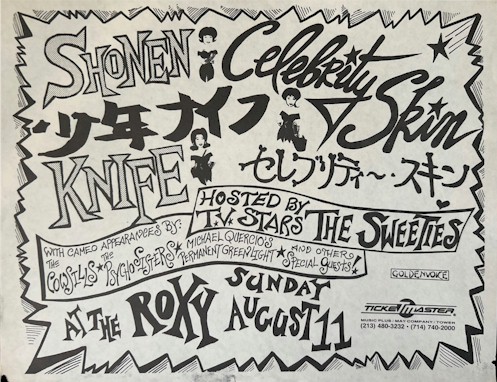 SHONEN
Celebrity Skin
少年ナイフ
KNIFE
セレブリティ〜・スキン
HOSTED BY
T.V. STARS THE SWEETIES
WITH CAMEO APPEARANCES BY:
THE COWSILLS ★ THE PSYCHO SISTERS ★ MICHAEL QUERCIO'S PERMANENT GREEN LIGHT ★ AND OTHER SPECIAL GUESTS
GOLDENVOICE
AT THE ROXY SUNDAY AUGUST 11
TICKETMASTER
MUSIC PLUS • MAY COMPANY • TOWER
(213) 480-3232 • (714) 740-2000